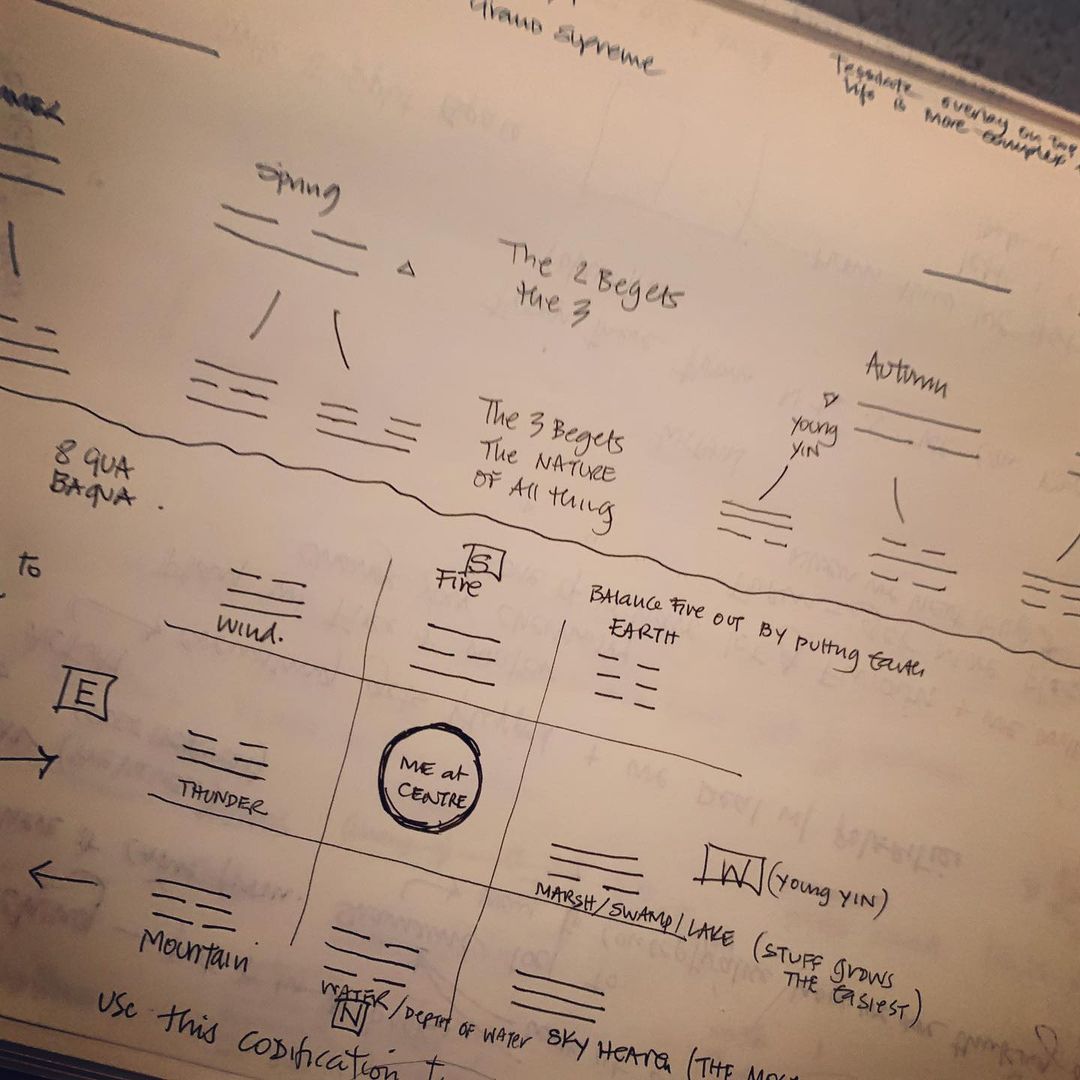 Grand Supreme
overlay on top
life is more complex
Spring
The 2 Begets
the 3
Autumn
young
YIN
The 3 Begets
The NATURE
OF All thing
8 QUA
BAQUA.
to
S
Fire
Balance Fire out By putting Earth
EARTH
Wind.
E
THUNDER
ME at
CENTRE
W (young YIN)
MARSH/SWAMP/LAKE (STUFF grows
THE Easiest)
Mountain
WATER/DEPTH OF WATER
N
SKY HEAVEN (THE
Use this codification